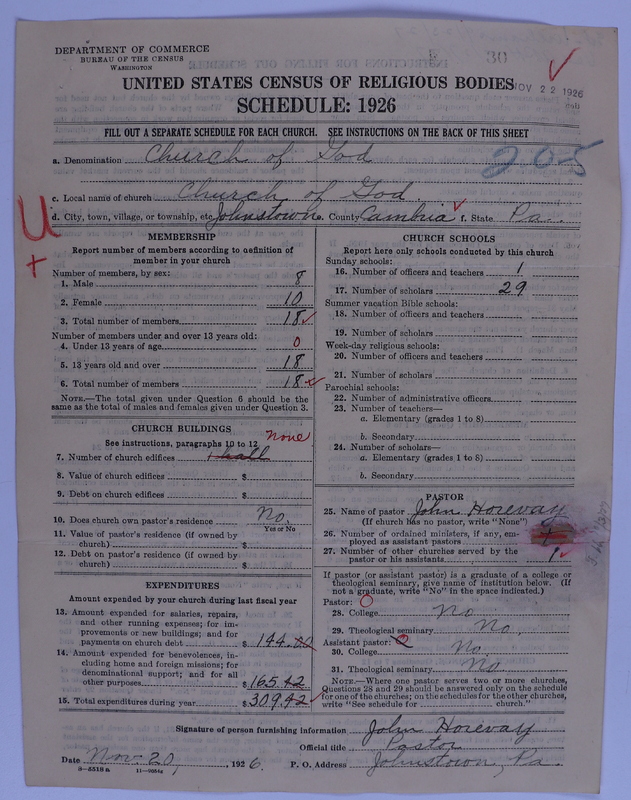 DEPARTMENT OF COMMERCE
BUREAU OF THE CENSUS
WASHINGTON
30
NOV 22 1926
UNITED STATES CENSUS OF RELIGIOUS BODIES
SCHEDULE: 1926
FILL OUT A SEPARATE SCHEDULE FOR EACH CHURCH. SEE INSTRUCTIONS ON THE BACK OF THIS SHEET
a. Denomination Church of God
205
c. Local name of church Church of God.
d. City, town, village, or township, etc. Johnstown. County Cambria f. State Pa.
U
+
MEMBERSHIP
Report number of members according to definition of
member in your church
Number of members, by sex:
1. Male 8
2. Female 10
3. Total number of members 18
Number of members under and over 13 years old:
4. Under 13 years of age 0
5. 13 years old and over 18
6. Total number of members 18
NOTE.—The total given under Question 6 should be
same as the total of males and females given under Question 3.
CHURCH BUILDINGS
See instructions, paragraphs 10 to 12 none
7. Number of church edifices 1 hall
8. Value of church edifices $
9. Debt on church edifices $
10. Does church own pastor's residence No.
Yes or No
11. Value of pastor's residence (if owned by
church) $
12. Debt on pastor's residence (if owned by
church) $
EXPENDITURES
Amount expended by your church during last fiscal year
13. Amount expended for salaries, repairs,
and other running expenses; for im-
provements or new buildings; and for
payments on church debt $ 144.00
14. Amount expended for benevolences, in-
cluding home and foreign missions; for
denominational support; and for all
other purposes $ 165.42
15. Total expenditures during year $ 309.42
CHURCH SCHOOLS
Report here only schools conducted by this church
Sunday schools:
16. Number of officers and teachers 1
17. Number of scholars 29
Summer vacation Bible schools:
18. Number of officers and teachers
19. Number of scholars
Week-day religious schools:
20. Number of officers and teachers
21. Number of scholars
Parochial schools:
22. Number of administrative officers
23. Number of teachers—
a. Elementary (grades 1 to 8)
b. Secondary
24. Number of scholars—
a. Elementary (grades 1 to 8)
b. Secondary
PASTOR
25. Name of pastor John Horevay
(If church has no pastor, write "None")
26. Number of ordained ministers, if any, em-
ployed as assistant pastors
27. Number of other churches served by the
pastor or his assistants 1
If pastor (or assistant pastor) is a graduate of a college or
theological seminary, give name of institution below. (If
not a graduate, write "No" in the space indicated.)
Pastor: 0
28. College No
29. Theological seminary No.
Assistant pastor: 0
30. College No.
31. Theological seminary No
NOTE.—Where one pastor serves two or more churches,
Questions 28 and 29 should be answered only on the schedule
for one of the churches; on the schedules for the other churches,
write "See schedule for church."
Signature of person furnishing information John Horevay
Official title Pastor
Date Nov. 20, 1926. P. O. Address Johnstown, Pa.
8—5518a 11—9054